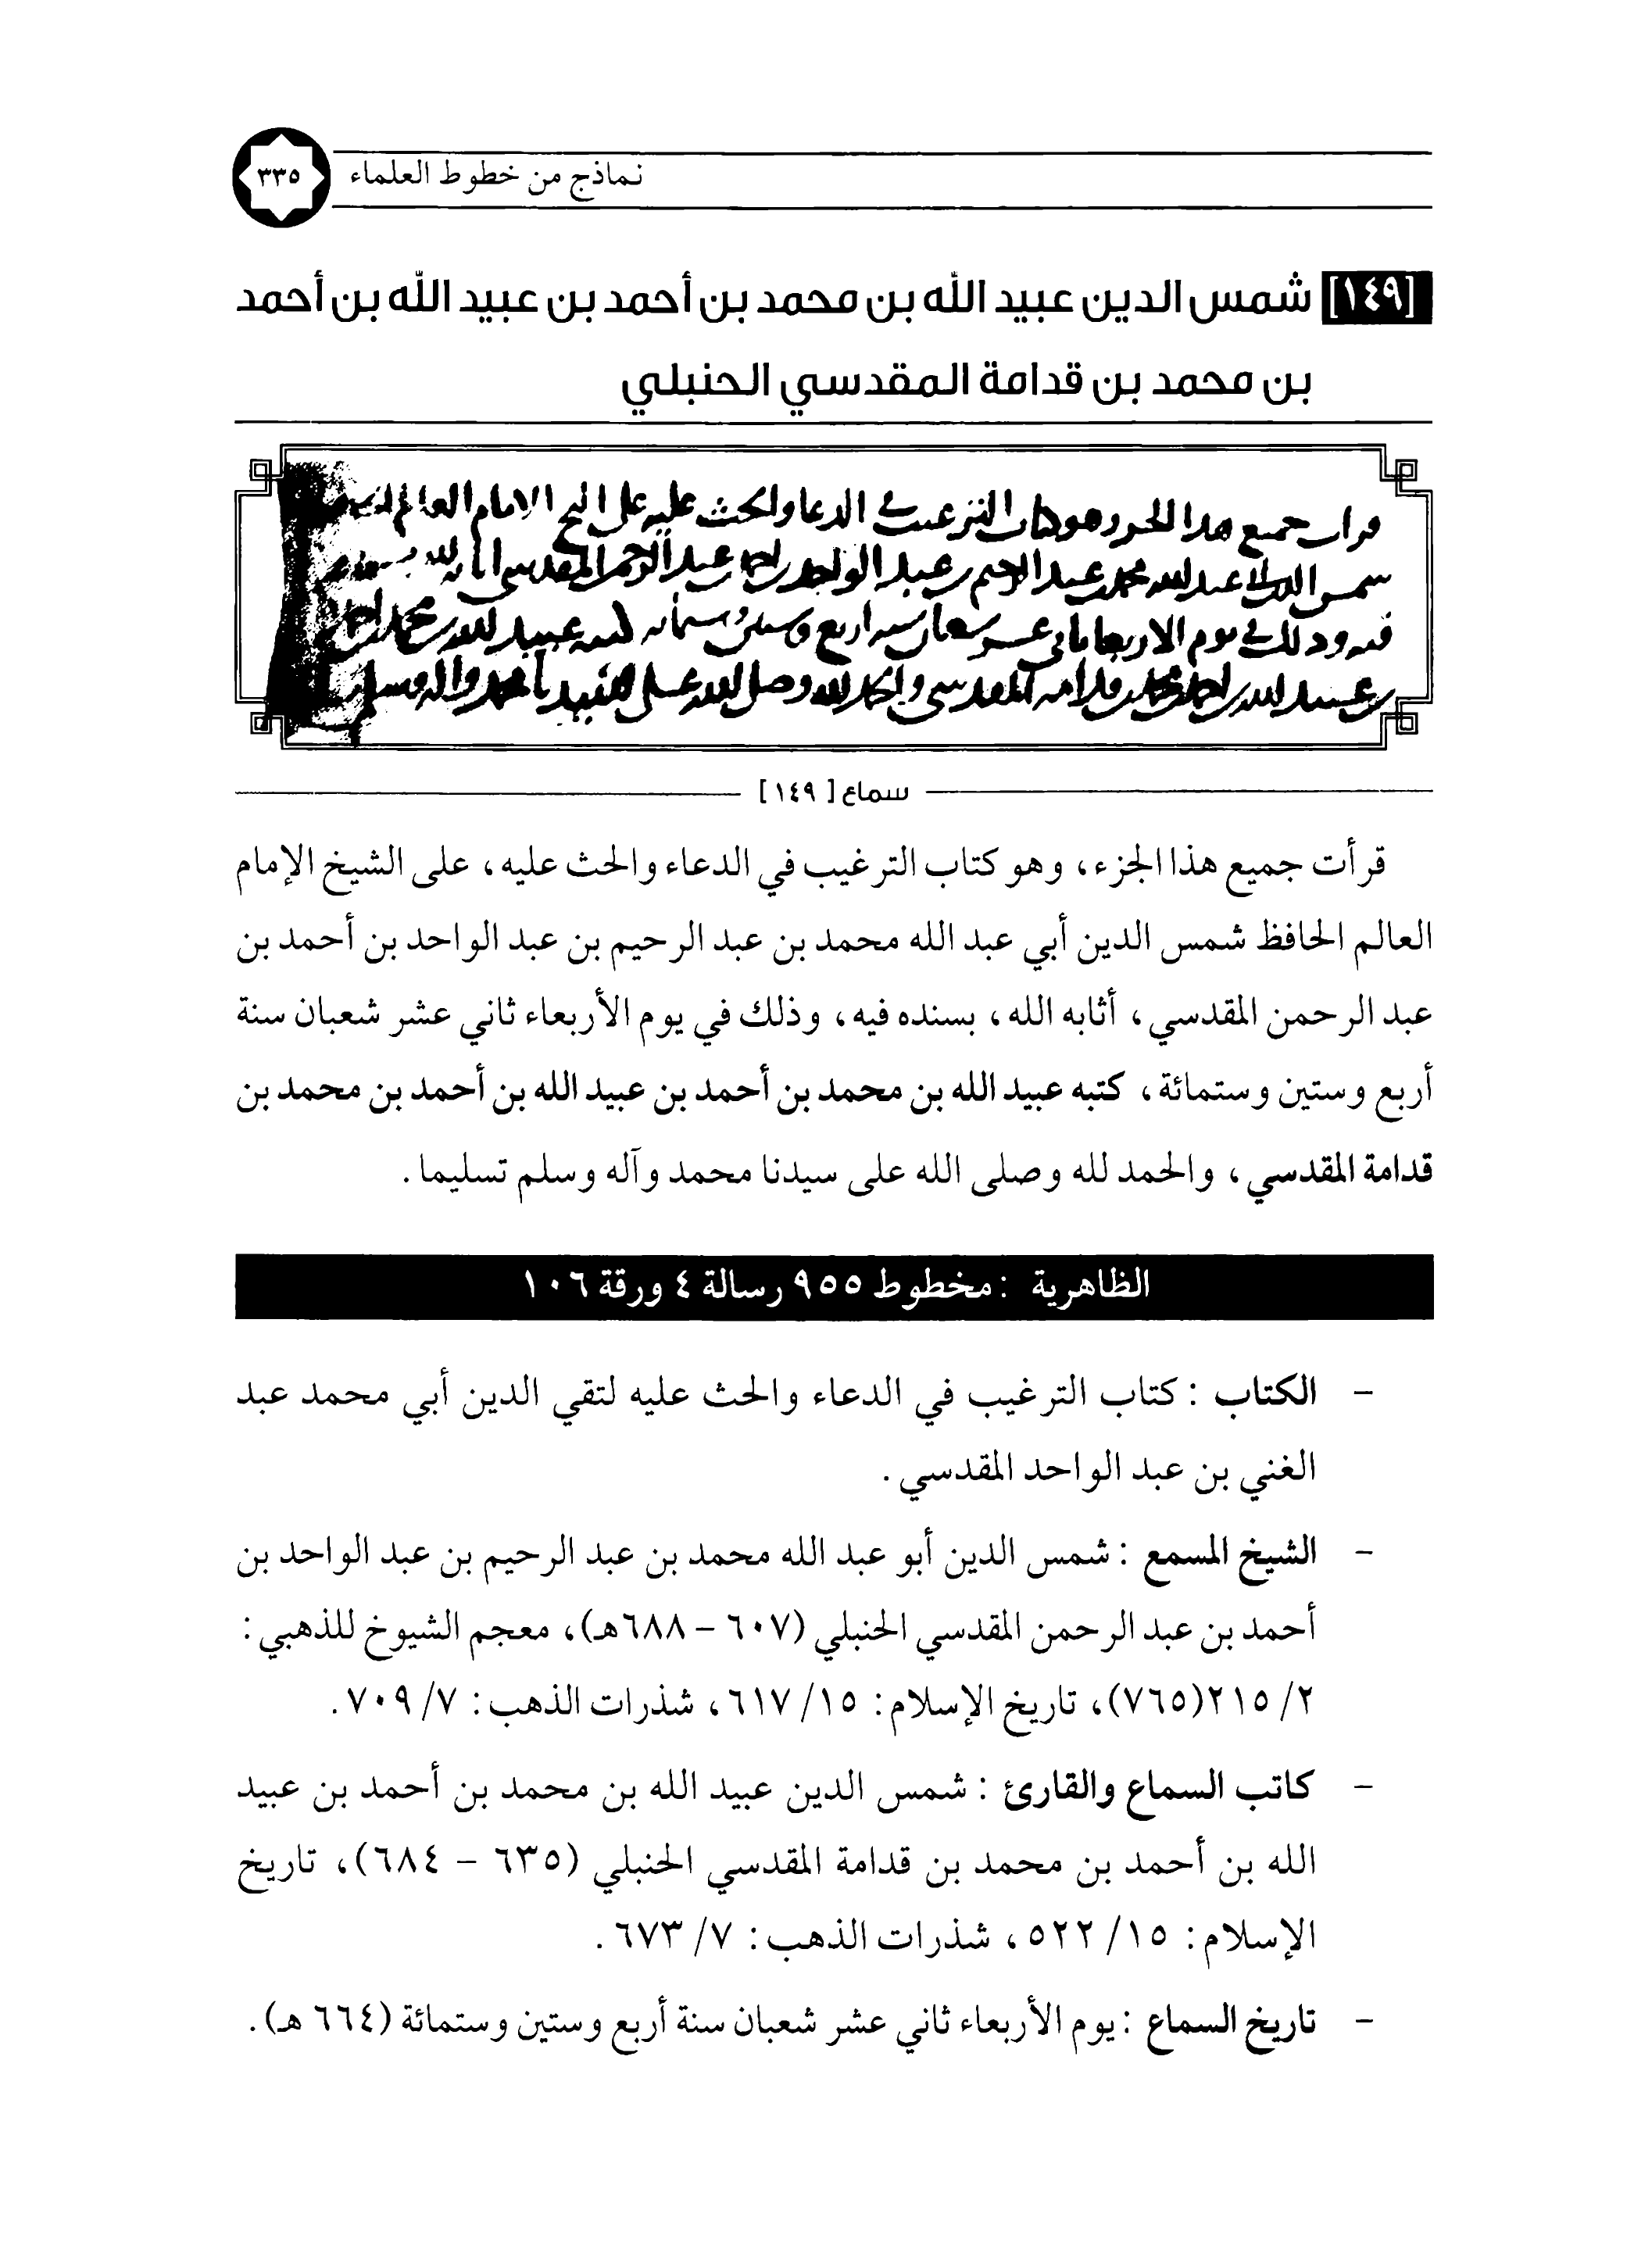 نماذج من خطوط العلماء ٣٣٥
[١٤٩] شمس الدين عبيد الله بن محمد بن أحمد بن عبيد الله بن أحمد
بن محمد بن قدامة المقدسي الحنبلي
سماع [ ١٤٩ ]
قرأت جميع هذا الجزء، وهو كتاب الترغيب في الدعاء والحث عليه، على الشيخ الإمام
العالم الحافظ شمس الدين أبي عبد الله محمد بن عبد الرحيم بن عبد الواحد بن أحمد بن
عبد الرحمن المقدسي، أثابه الله، بسنده فيه، وذلك في يوم الأربعاء ثاني عشر شعبان سنة
أربع وستين وستمائة، كتبه عبيد الله بن محمد بن أحمد بن عبيد الله بن أحمد بن محمد بن
قدامة المقدسي، والحمد لله وصلى الله على سيدنا محمد وآله وسلم تسليما.
الظاهرية : مخطوط ٩٥٥ رسالة ٤ ورقة ١٠٦
- الكتاب : كتاب الترغيب في الدعاء والحث عليه لتقي الدين أبي محمد عبد
الغني بن عبد الواحد المقدسي.
- الشيخ المسمع : شمس الدين أبو عبد الله محمد بن عبد الرحيم بن عبد الواحد بن
أحمد بن عبد الرحمن المقدسي الحنبلي (٦٠٧ - ٦٨٨هـ)، معجم الشيوخ للذهبي:
٢/ ٢١٥(٧٦٥)، تاريخ الإسلام: ١٥/ ٦١٧، شذرات الذهب: ٧/ ٧٠٩.
- كاتب السماع والقارئ : شمس الدين عبيد الله بن محمد بن أحمد بن عبيد
الله بن أحمد بن محمد بن قدامة المقدسي الحنبلي (٦٣٥ - ٦٨٤)، تاريخ
الإسلام: ١٥/ ٥٢٢، شذرات الذهب: ٧/ ٦٧٣.
- تاريخ السماع : يوم الأربعاء ثاني عشر شعبان سنة أربع وستين وستمائة (٦٦٤ هـ).